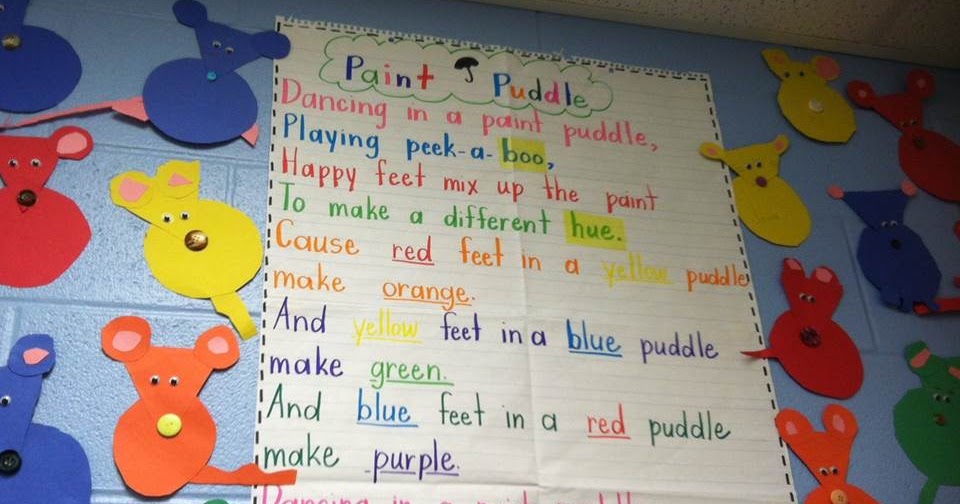 Paint Puddle
Dancing in a paint puddle,
Playing peek-a-boo,
Happy feet mix up the paint
To make a different hue.
Cause red feet in a yellow puddle
make orange.
And yellow feet in a blue puddle
make green.
And blue feet in a red puddle
make purple.
Dancing in a